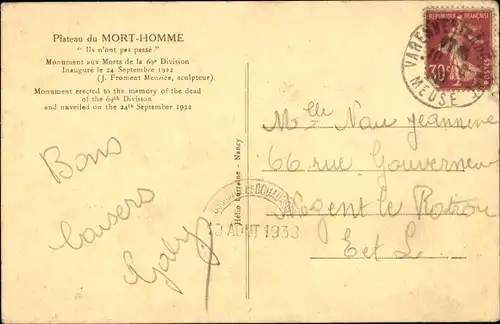 Plateau du MORT-HOMME
" Ils n'ont pas passé "
Monument aux Morts de la 69e Division
Inauguré le 24 Septembre 1922
(J. Froment Meurice, sculpteur)
Monument erected to the memory of the dead
of the 69th Division
and unveiled on the 24th September 1922
Bons
baisers
Gaby
Hélio Lorraine - Nancy
RÉPUBLIQUE FRANÇAISE
POSTES
MEUSE
AOUT 193
Mlle Nau Jeannine
66 rue Gouverneur
Nogent le Rotrou
E et L.